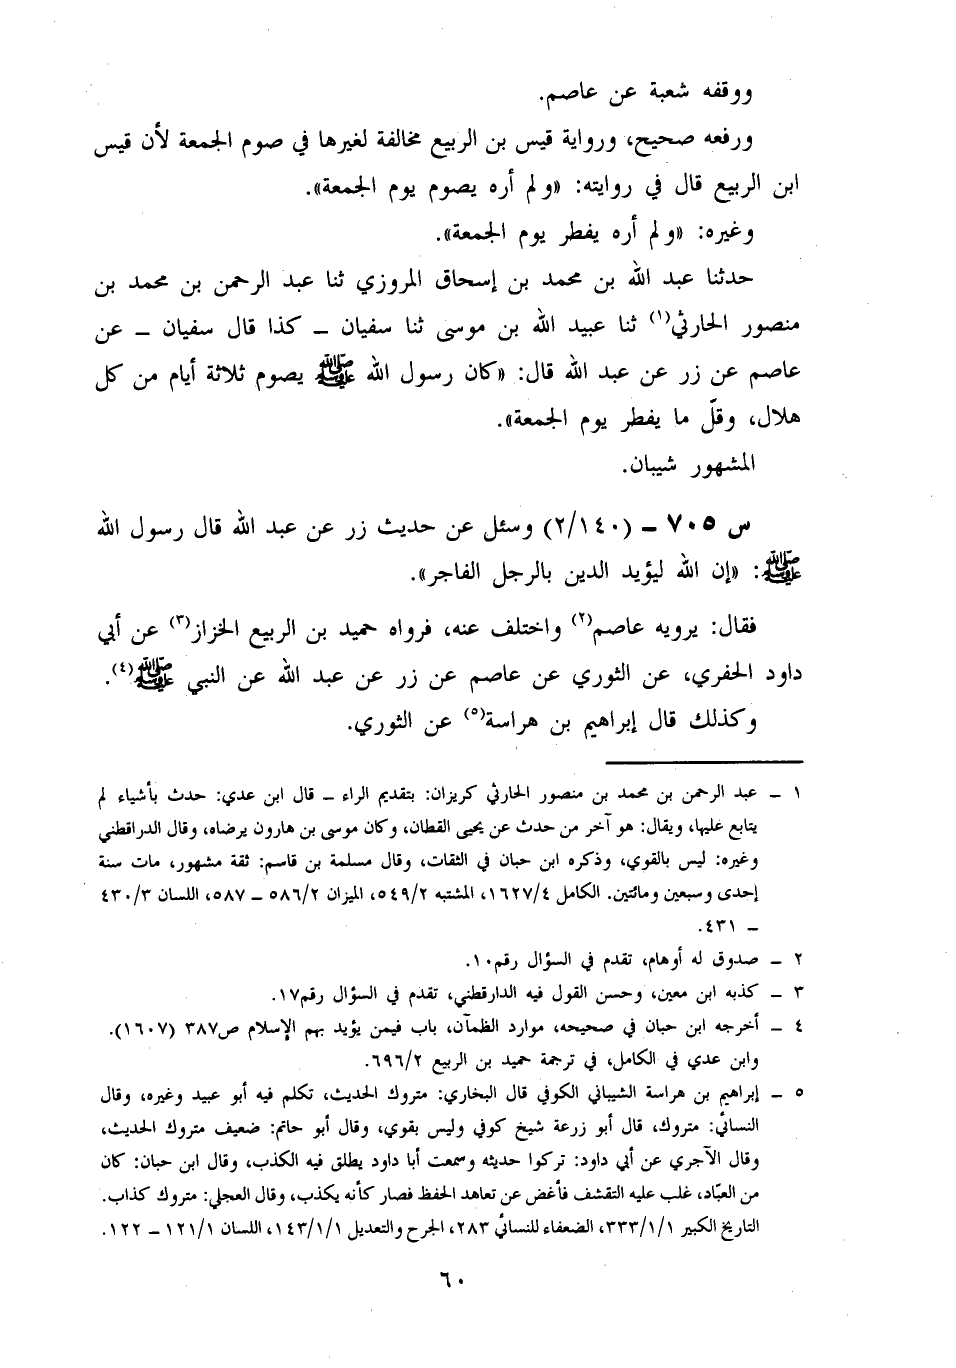 ووقفه شعبة عن عاصم.
ورفعه صحيح، ورواية قيس بن الربيع مخالفة لغيرها في صوم الجمعة لأن قيس
ابن الربيع قال في روايته: «ولم أره يصوم يوم الجمعة».
وغيره: «ولم أره يفطر يوم الجمعة».
حدثنا عبد الله بن محمد بن إسحاق المروزي ثنا عبد الرحمن بن محمد بن
منصور الحارثي(١) ثنا عبيد الله بن موسى ثنا سفيان ــ كذا قال سفيان ــ عن
عاصم عن زر عن عبد الله قال: «كان رسول الله ﷺ يصوم ثلاثة أيام من كل
هلال، وقلّ ما يفطر يوم الجمعة».
المشهور شيبان.
س ٧٠٥ ــ (٢/١٤٠) وسئل عن حديث زر عن عبد الله قال رسول الله
ﷺ: «إن الله ليؤيد الدين بالرجل الفاجر».
فقال: يرويه عاصم(٢) واختلف عنه، فرواه حميد بن الربيع الخزاز(٣) عن أبي
داود الحفري، عن الثوري عن عاصم عن زر عن عبد الله عن النبي ﷺ(٤).
وكذلك قال إبراهيم بن هراسة(٥) عن الثوري.
١ ــ عبد الرحمن بن محمد بن منصور الحارثي كريزان: بتقديم الراء ــ قال ابن عدي: حدث بأشياء لم
يتابع عليها، ويقال: هو آخر من حدث عن يحيى القطان، وكان موسى بن هارون يرضاه، وقال الدراقطني
وغيره: ليس بالقوي، وذكره ابن حبان في الثقات، وقال مسلمة بن قاسم: ثقة مشهور، مات سنة
إحدى وسبعين ومائتين. الكامل ١٦٢٧/٤، المشتبه ٥٤٩/٢، الميزان ٥٨٦/٢ ــ ٥٨٧، اللسان ٤٣٠/٣
ــ ٤٣١.
٢ ــ صدوق له أوهام، تقدم في السؤال رقم١٠.
٣ ــ كذبه ابن معين، وحسن القول فيه الدارقطني، تقدم في السؤال رقم١٧.
٤ ــ أخرجه ابن حبان في صحيحه، موارد الظمآن، باب فيمن يؤيد بهم الإسلام ص٣٨٧ (١٦٠٧).
وابن عدي في الكامل، في ترجمة حميد بن الربيع ٦٩٦/٢.
٥ ــ إبراهيم بن هراسة الشيباني الكوفي قال البخاري: متروك الحديث، تكلم فيه أبو عبيد وغيره، وقال
النسائي: متروك، قال أبو زرعة شيخ كوفي وليس بقوي، وقال أبو حاتم: ضعيف متروك الحديث،
وقال الآجري عن أبي داود: تركوا حديثه وسمعت أبا داود يطلق فيه الكذب، وقال ابن حبان: كان
من العبّاد، غلب عليه التقشف فأغض عن تعاهد الحفظ فصار كأنه يكذب، وقال العجلي: متروك كذاب.
التاريخ الكبير ٣٣٣/١/١، الضعفاء للنسائي ٢٨٣، الجرح والتعديل ١٤٣/١/١، اللسان ١٢١/١ ــ ١٢٢.
٦٠